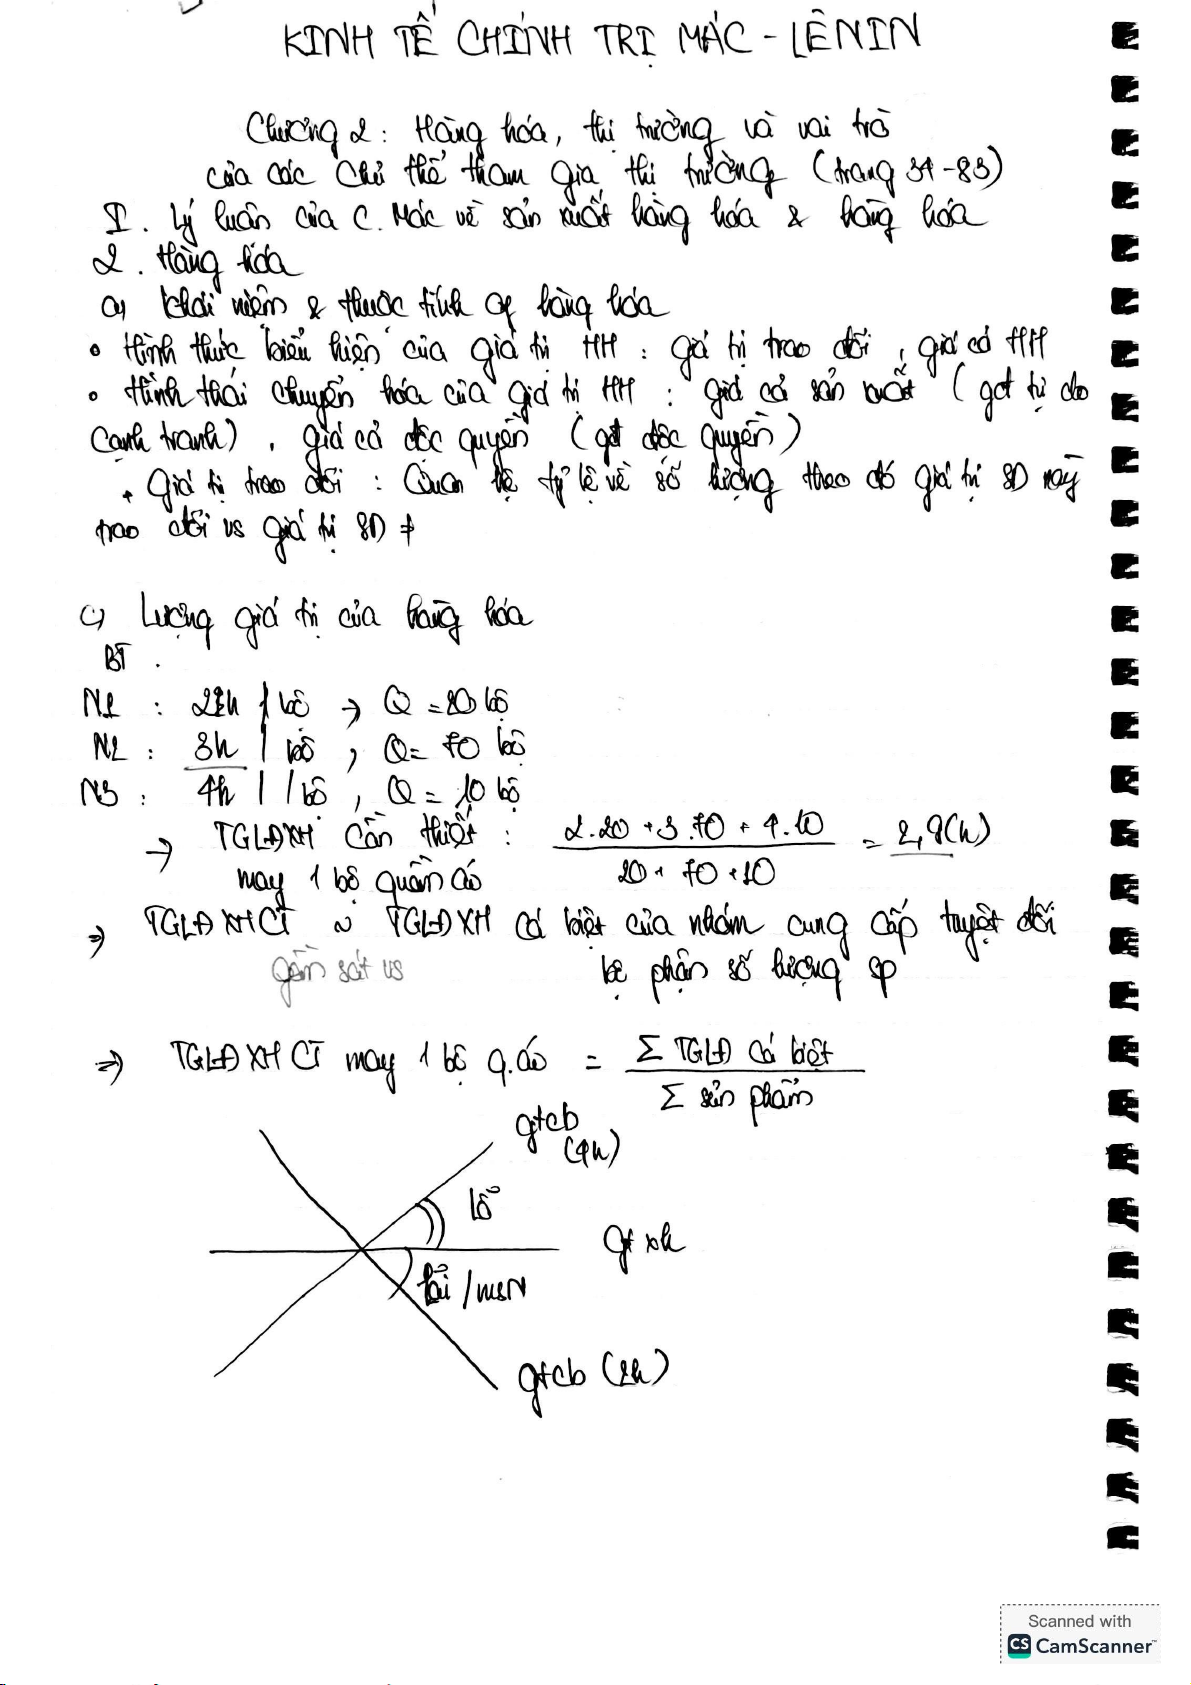 KINH TẾ CHÍNH TRỊ MÁC - LÊNIN
Chương 2: Hàng hóa, thị trường và vai trò
của các chủ thể tham gia thị trường (trang 34-83)
I. Lý luận của C. Mác về sản xuất hàng hóa & hàng hóa
2. Hàng hóa
a) Khái niệm & thuộc tính of hàng hóa
• Hình thức "biểu hiện" của giá trị HH: giá trị trao đổi, giá cả HH
• Hình thái chuyển hóa của giá trị HH: giá cả sản xuất (gđ tự do
cạnh tranh), giá cả độc quyền (gđ độc quyền)
+ Giá trị trao đổi: Quan hệ tỷ lệ về số lượng theo đó giá trị SD này
trao đổi vs giá trị SD ≠
c) Lượng giá trị của hàng hóa
BT.
N1: 2h / bộ → Q = 20 bộ
N2: 3h / bộ, Q = 70 bộ
N3: 4h / 1 bộ, Q = 10 bộ
→ TGLĐXH cần thiết: 2.20 + 3.70 + 4.10 = 2,9(h)
may 1 bộ quần áo 20 + 70 + 10
⇒ TGLĐXHCT ~ TGLĐXH cá biệt của nhóm cung cấp tuyệt đối
gần sát vs bộ phận số lượng sp
⇒ TGLĐXHCT may 1 bộ q.áo = Σ TGLĐ cá biệt
Σ sản phẩm
gtcb
(4h)
lỗ
gt xh
lãi / msN
gtcb (2h)
Scanned with
CS CamScanner